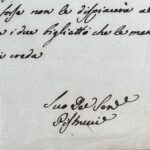 forse non le dispiacerà al
i due biglietti che le man
i creda
Suo Dev Serv